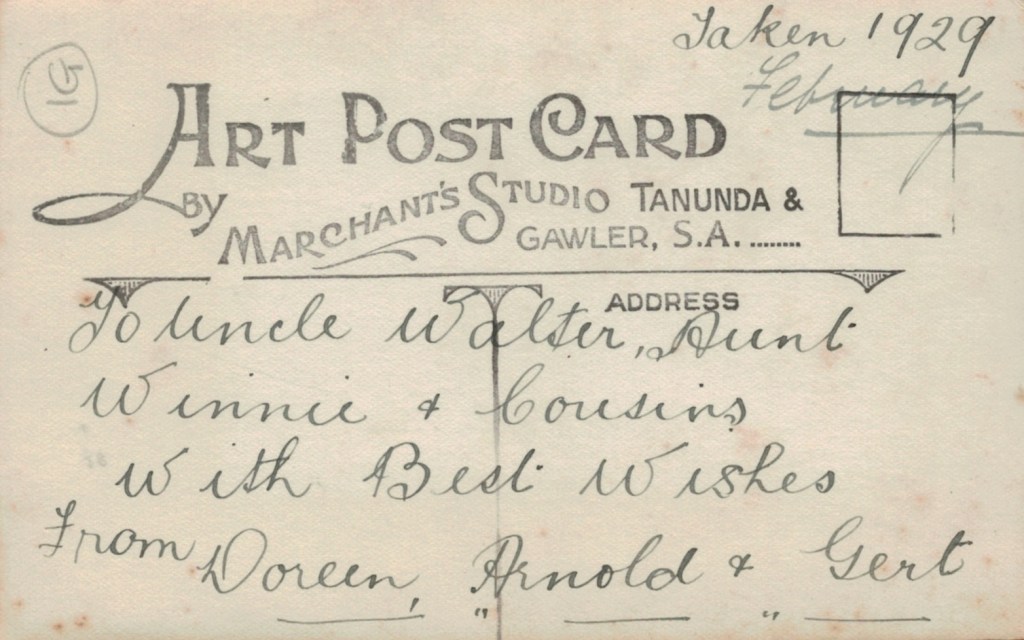 Taken 1929
February
ART POST CARD
BY MARCHANT'S STUDIO TANUNDA &
GAWLER, S.A. ........
ADDRESS
To Uncle Walter, Aunt
Winnie & Cousins
With Best Wishes
From Doreen, Arnold & Gert